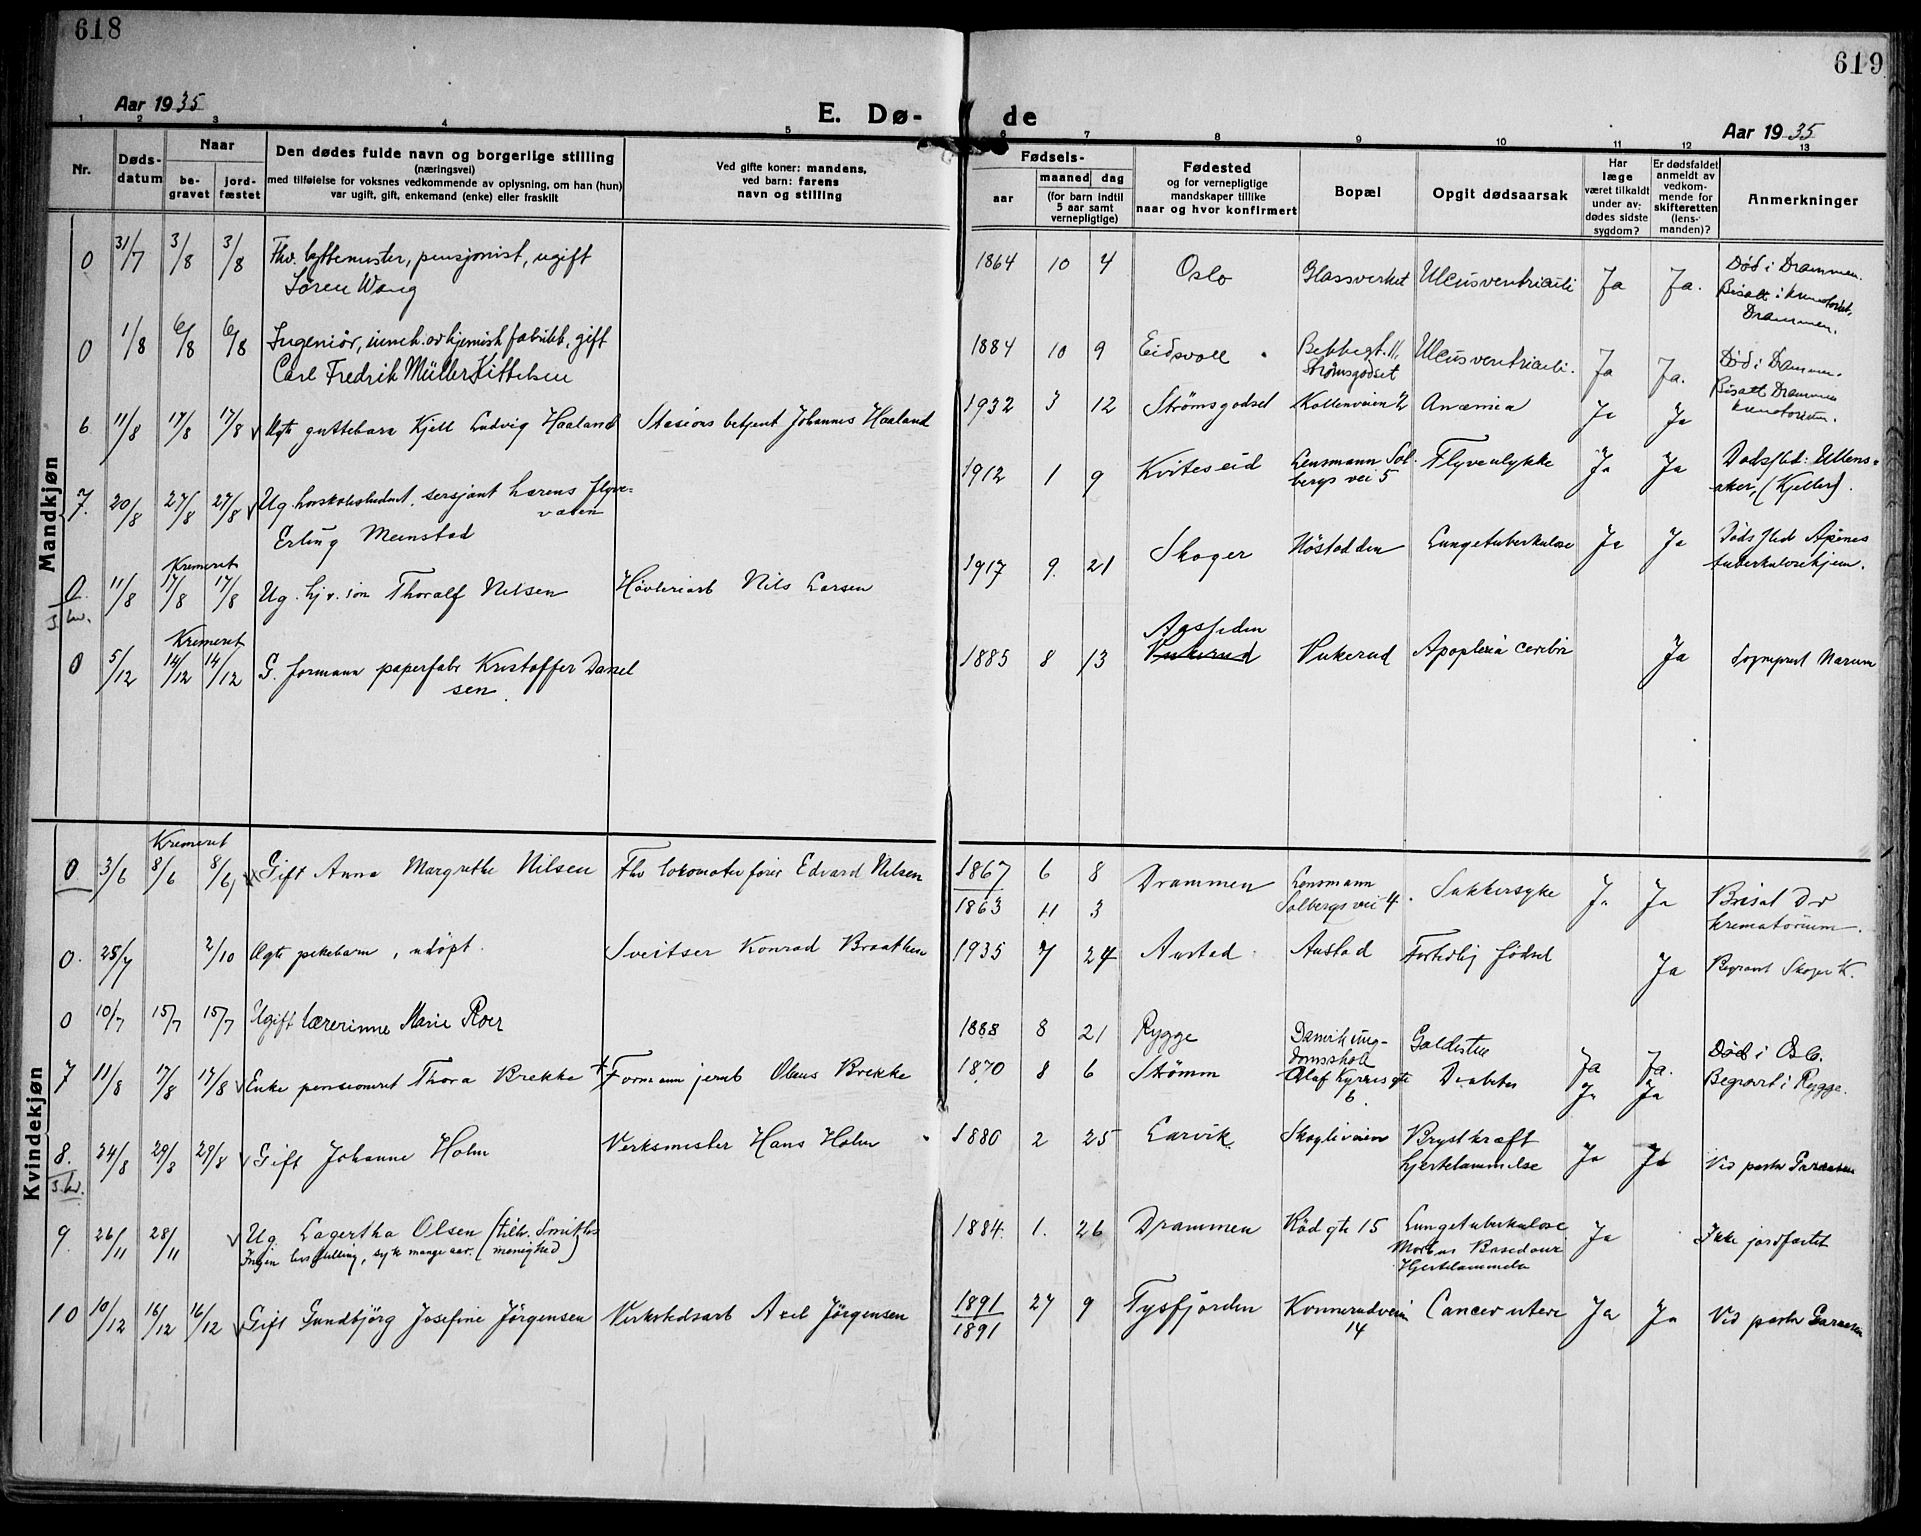 618
619
Aar 1935
E. Dø-
de
Aar 1935
1 2 3 4 5 6 7 8 9 10 11 12 13
Nr.
Døds-
datum
Naar
be-
gravet
jord-
fæstet
Den dødes fulde navn og borgerlige stilling
(næringsvei)
med tilføielse for voksnes vedkommende av oplysning, om han (hun)
var ugift, gift, enkemand (enke) eller fraskilt
Ved gifte koner: mandens,
ved barn: farens
navn og stilling
Fødsels-
aar
maaned dag
(for barn indtil
5 aar samt
vernepligtige)
Fødested
og for vernepligtige
mandskaper tillike
naar og hvor konfirmert
Bopæl
Opgit dødsaarsak
Har
læge
været tilkaldt
under av-
dødes sidste
sygdom?
Er dødsfaldet
anmeldt av
vedkom-
mende for
skifteretten
(lens-
manden)?
Anmerkninger
Mandkjøn
0 31/7 3/8 3/8 Fhv. byttemester, pensjonist, ugift
Søren Wang
1864 10 4 Oslo Glassverket Ulcus ventriculi Ja Ja. Død i Drammen.
Bisatt i krematoriet,
Drammen.
0 1/8 6/8 6/8 Ingeniør, kjemisk fabrikk, gift
Carl Fredrik Müller Kittelsen
1884 10 9 Eidsvoll Bekkegt. 11, Ulcus ventriculi. Ja Ja. Død i Drammen.
Strømsgodset
Bisatt Drammen
krematorium.
6 11/8 17/8 17/8 Ægte guttebarn Kjell Ludvig Haaland Stasjons betjent Johannes Haaland
1932 3 12 Strømsgodset Kollenveien 2 Anæmia Ja Ja
7. 20/8 27/8 27/8 Ug. sersjant hærens flyve-
våben
Erling Meinstad
1912 1 9 Kviteseid Lensmann Sol- Flyveulykke Ja Ja Dødssted: Ullens-
bergs vei 5
aker, (Kjeller).
Kremeret
0. 11/8 17/8 17/8 Ug. hj. v. søn Thoralf Nilsen Høvleriarb Nils Larsen
1917 9. 21 Skoger Høstadden Lungetuberkulose Ja Ja Dødssted Åpenes
tuberkulosehjem.
Kremeret
0 5/12 14/12 14/12 G. formann paperfabr Kristoffer Daniel
sen.
Aasseden
1885 8 13 Vukerud Vukerud Apoplexia cerebri Ja Sogneprest Narum
Kvindekjøn
Kremeret
0 3/6 8/6 8/6 Gift Anna Margrethe Nilsen Fhv lokomotivfører Edvard Nilsen
1867 6 8 Drammen Lensmann Sukkersyke Ja Ja Bisat Dr
1863 11 3
Solbergs vei 4
krematorium.
0. 25/7 2/10 Ægte pikebarn, udøpt. Sveitser Konrad Braathen
1935 7 24 Austad Austad Fortidlig fødsel Ja Begravet Skoger K.
0 10/7 15/7 15/7 Ugift lærerinne Marie Roer
1888 8 21 Rygge Danvik ung- Galdesten Ja Ja. Død i Oslo.
domsskole
Begravet i Rygge.
7 11/8 17/8 17/8 Enke pensioneret Thora Brekke + Formann jernb Olaus Brekke
1870 8 6 Strømm Olaf Kyrres gte Diabetes Ja Ja
6.
8. 24/8 29/8 29/8 Gift Johanne Holm Verksmester Hans Holm
1880 2 25 Larvik Skogliveien Brystkræft Ja Ja Ved pastor
hjertelammelse
9. 26/11 28/11 Ug. Lagertha Olsen (tilh. Smiths
Ingen livsstilling, syk mange aar. (menighed)
1884 1. 26 Drammen Rød gte 15 Lungetuberkulose Ja Ikke jordfæstet
Morbus Basedowi
Hjertelammelse
10 10/12 16/12 16/12 Gift Gundbjørg Josefine Jørgensen Verkstedsarb Axel Jørgensen
1891 27 9 Tysfjorden Konnerudveien Cancer uteri Ja Ja Ved pastor
1891
14